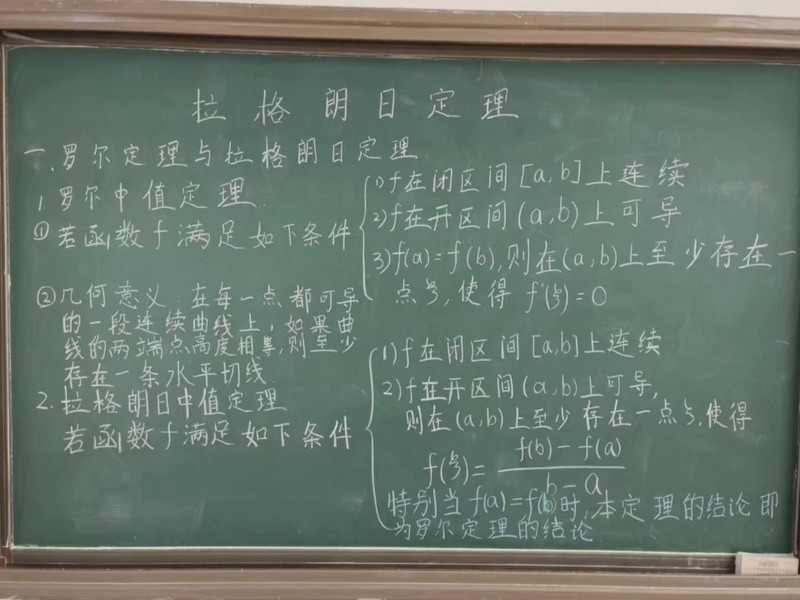 拉格朗日定理
一、罗尔定理与拉格朗日定理
1.罗尔中值定理.
①若函数f满足如下条件
1)f在闭区间[a,b]上连续
2)f在开区间(a,b)上可导
3)f(a)=f(b),则在(a,b)上至少存在一
点ξ,使得 f'(ξ)=0
②几何意义:在每一点都可导
的一段连续曲线上,如果曲
线的两端点高度相等,则至少
存在一条水平切线.
2.拉格朗日中值定理
若函数f满足如下条件
1)f在闭区间[a,b]上连续
2)f在开区间(a,b)上可导,
则在(a,b)上至少存在一点ξ,使得
f(ξ)=\frac{f(b)-f(a)}{b-a}
特别当f(a)=f(b)时,本定理的结论即
为罗尔定理的结论.